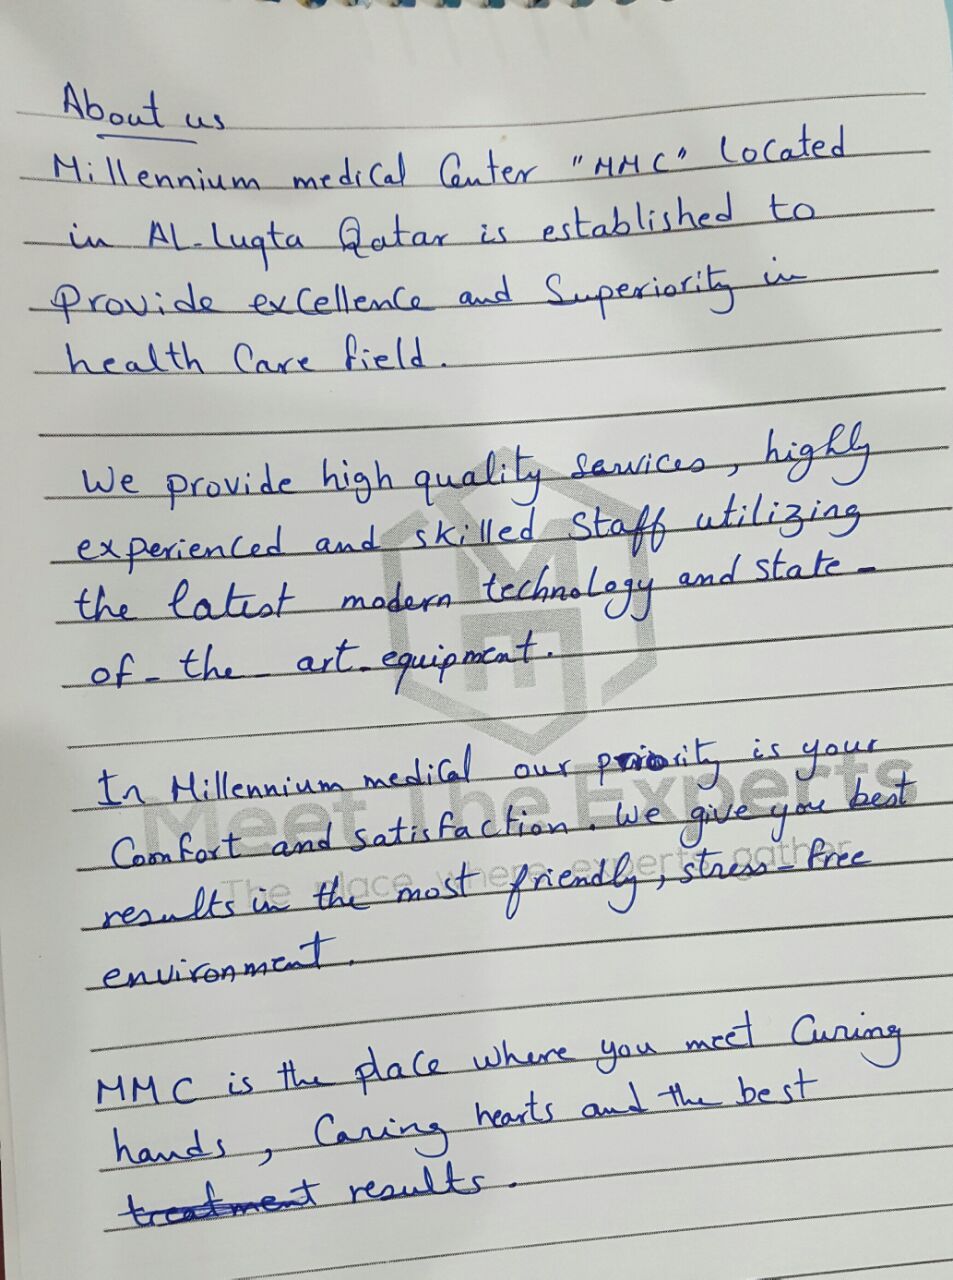 About us
Millennium medical Center "MMC" Located
in AL-Luqta Qatar is established to
Provide excellence and Superiority in
health Care field.
We provide high quality services, highly
experienced and skilled Staff utilizing
the latest modern technology and state-
of-the-art-equipment.
In Millennium medical our priority is your
Comfort and satisfaction. We give you best
results in the most friendly, stress-free
environment.
MMC is the place where you meet Curing
hands, Caring hearts and the best
treatment results.
Meet The Experts
The place where experts gather